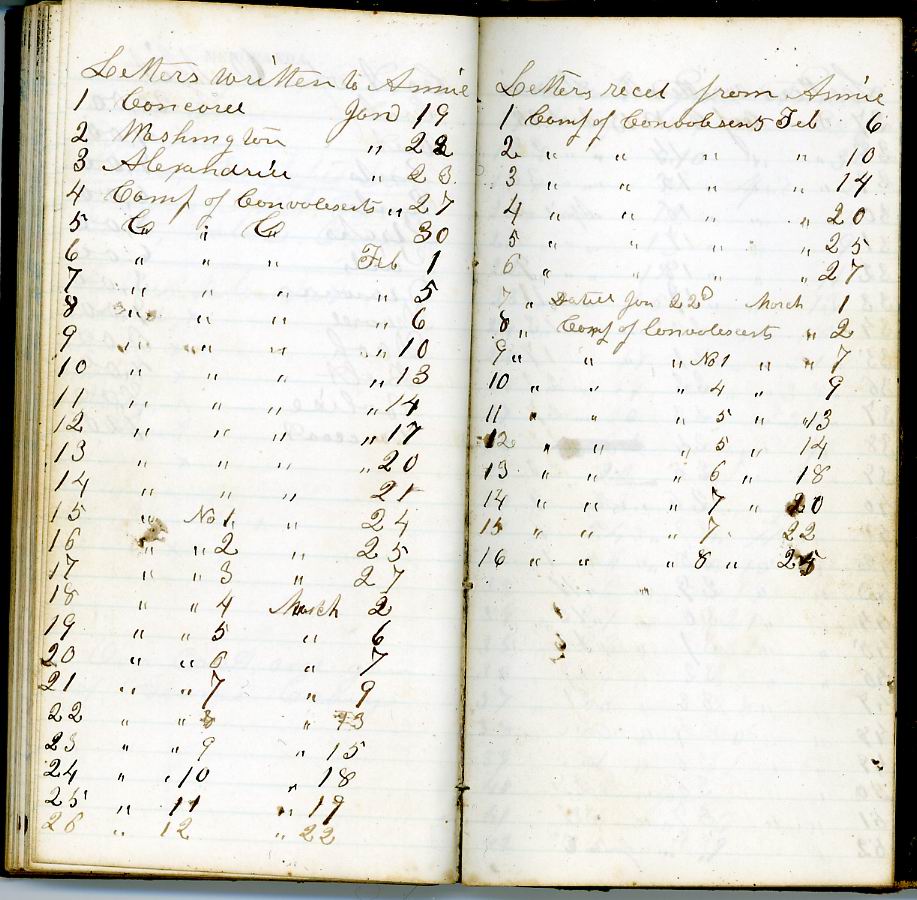 Letters written to Annie
1 Concord Jan 19
2 Washington " 22
3 Alexandria " 23
4 Camp of Convolescents " 27
5 Co " Co 30
6 " " " Feb 1
7 " " " " 5
8 " " " " 6
9 " " " " 10
10 " " " " 13
11 " " " " 14
12 " " " " 17
13 " " " " 20
14 " " " 21
15 " No 1 " 24
16 " " 2 " 25
17 " " 3 " 27
18 " " 4 March 2
19 " " 5 " 6
20 " " 6 " 7
21 " " 7 " 9
22 " " 8 " 13
23 " " 9 " 15
24 " " 10 " 18
25 " 11 " 19
26 " 12 " 22
Letters recd from Annie
1 Camp of Convolesents Feb 6
2 " " " " 10
3 " " " " 14
4 " " " " 20
5 " " " " 25
6 " " " " 27
7 " Dated Jan 22d March 1
8 " Camp of Convolescents " 2
9 " " " No 1 " " 7
10 " " " 4 " 9
11 " " " 5 " " 13
12 " " " 5 " 14
13 " " " 6 " 18
14 " " " 7 " 20
15 " " 7 " 22
16 " " " 8 " 25
"